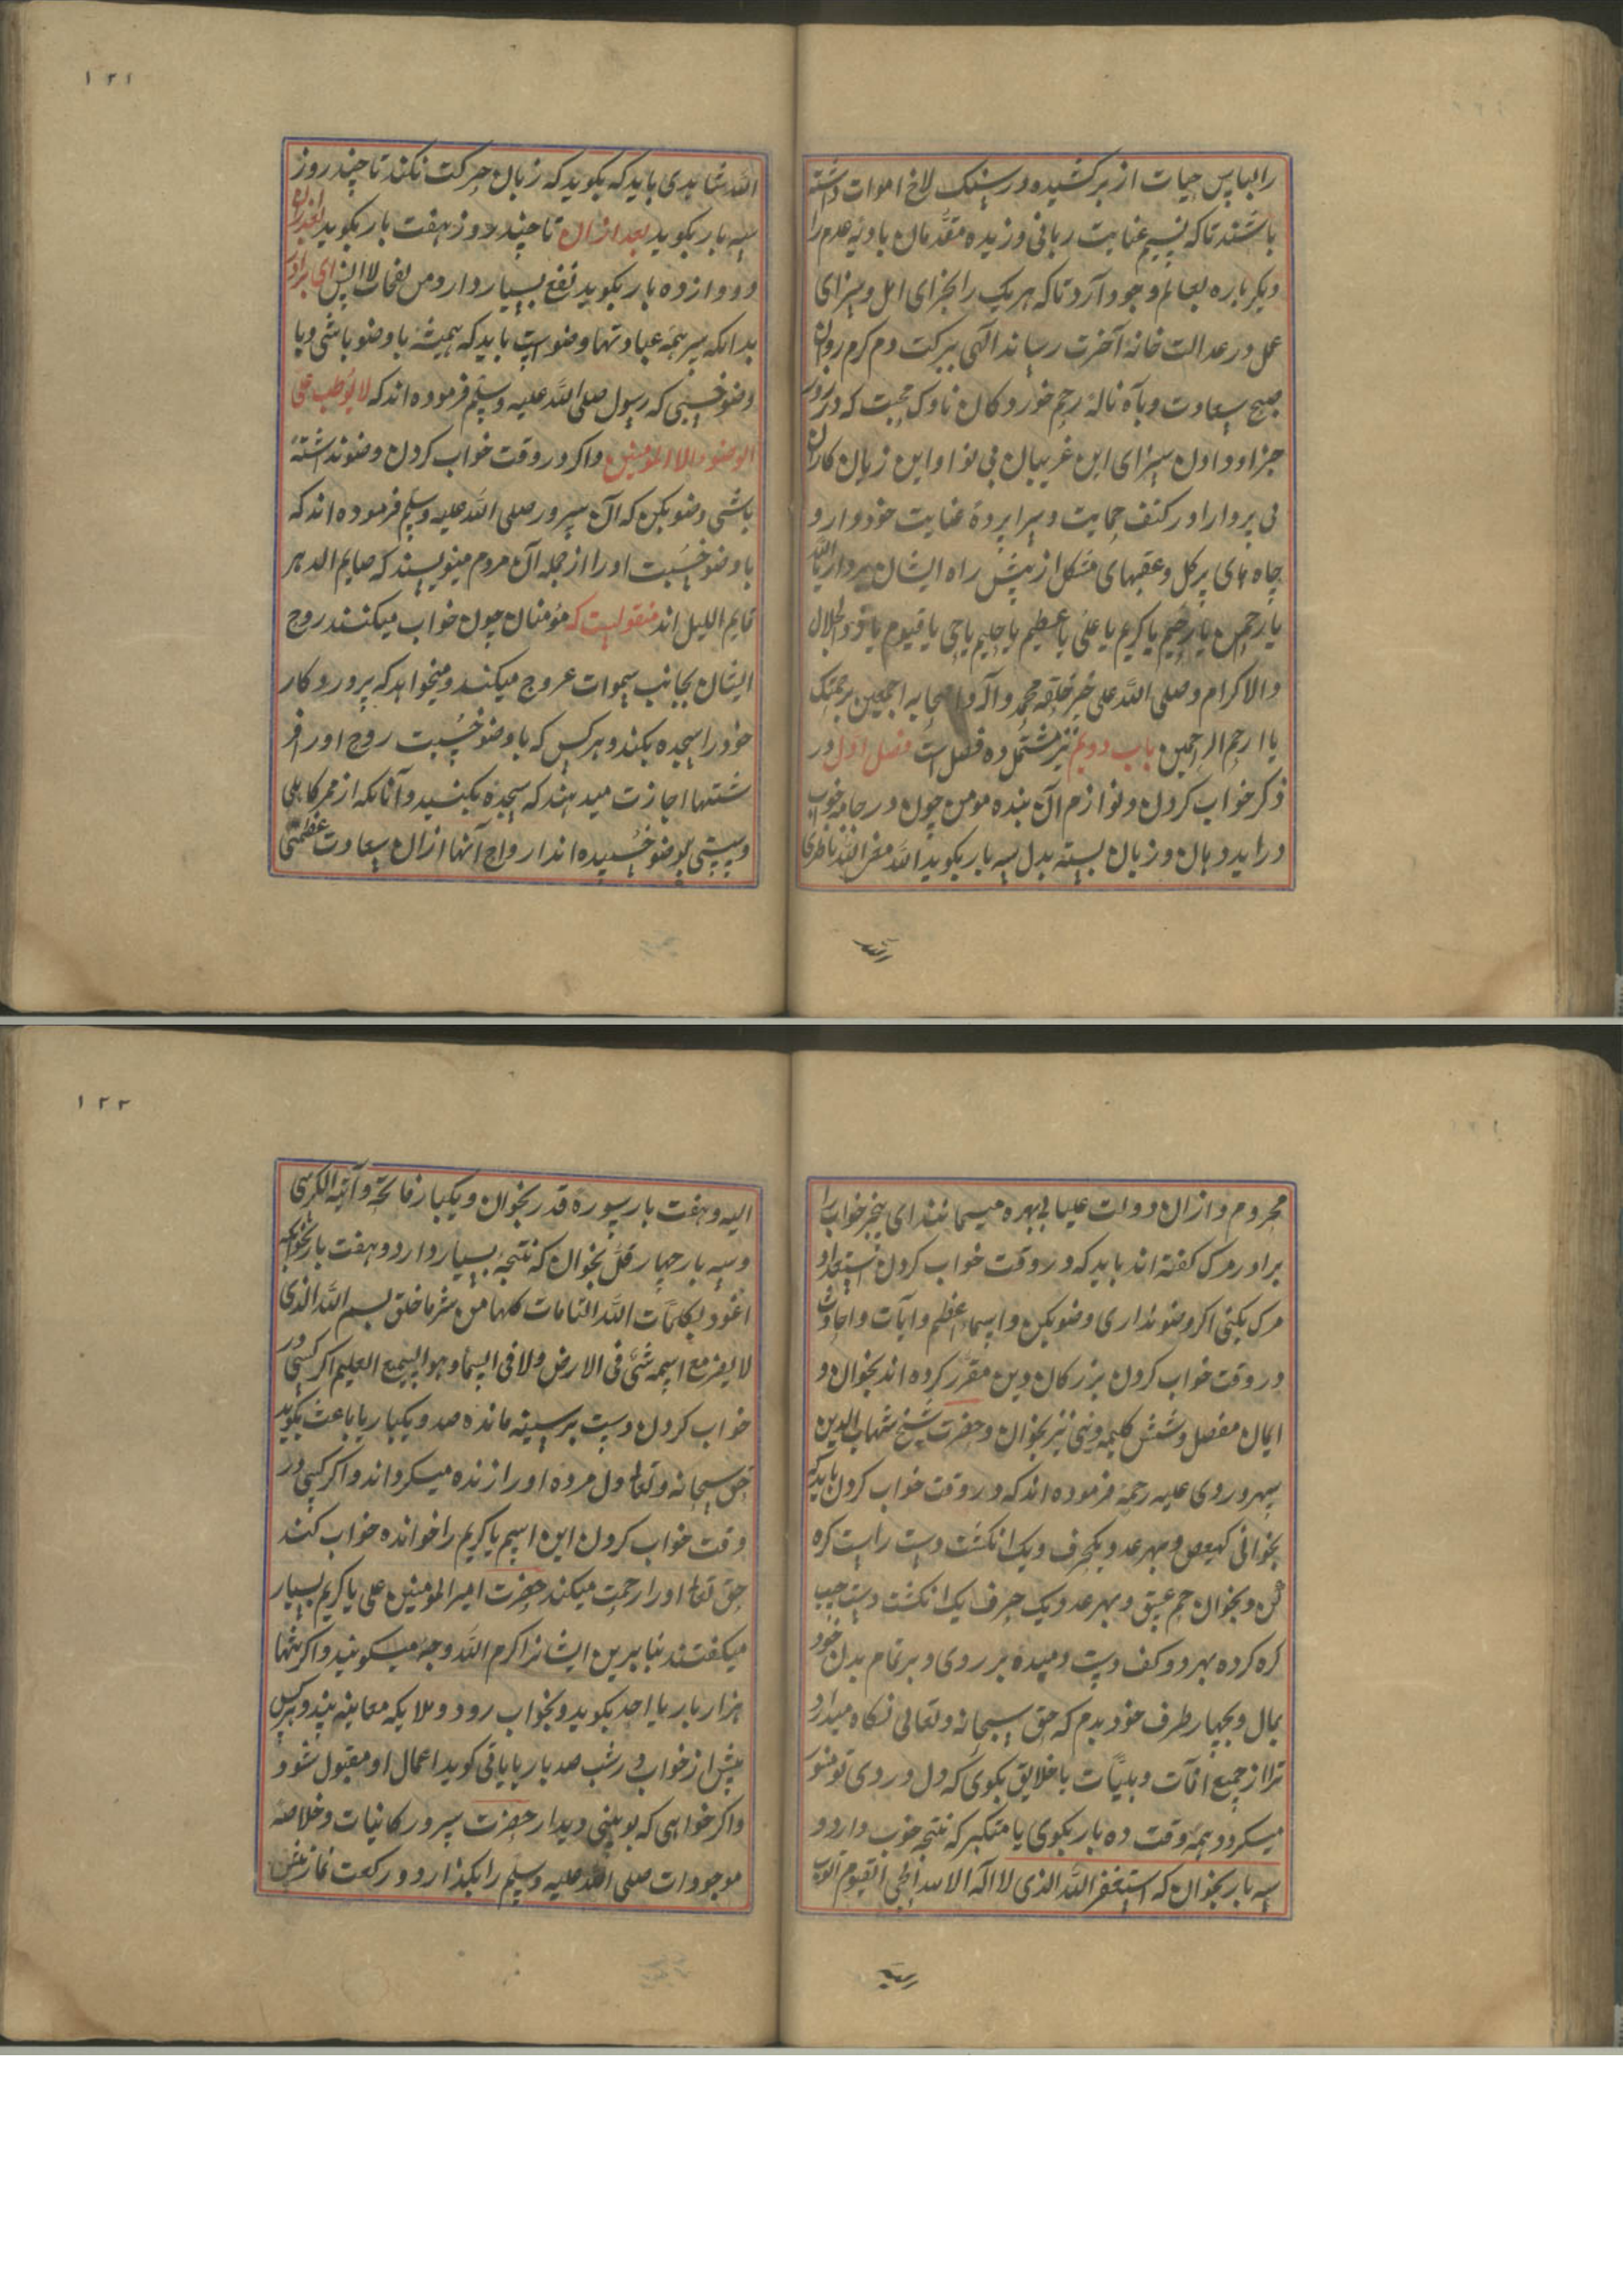 را لباس حیات از بر کشیده در سنک لاخ اموات داشته
باشند تا که نسیم عنایت ربانی وزیده مقدمان بادیه عدم را
دیکر باره بعالم وجود آرد تا که هر یک را بجزای اهل و سزای
عمل در عدالت خانه آخرت رساند الهی ببرکت دم کرم روان
صبح سعادت و بآه ناله زخم خوردکان ناوک محبت که در روز
جزا و دادن سزای این غریبان بی نوا و این زیان کاران
بی پروا را در کنف حمایت و سراپرده عنایت خود دار و
چاه های پر کل و عقبهای مشکل از پیش راه ایشان بردار یا الله
یا رحمن یا رحیم یا کریم یا علی یا عظیم یا حلیم یا حی یا قیوم یا ذو الجلال
والاکرام و صلی الله علی خیر خلقه محمد وآله واصحابه اجمعین برحمتک
یا ارحم الراحمین باب دویم نیز مشتمل ده فصل است فصل اول در
ذکر خواب کردن و لوازم آن بنده مومن چون در جامه خواب
در اید دهان و زبان بسته بدل سه بار بکوید الله معی الله ناظری
الله شاهدی باید که بکوید که زبان حرکت نکند تا چند روز
سه بار بکوید بعد ازان تا چند روز هفت بار بکوید بعد ازان
دوازده بار بکوید نفع بسیار دارد من نفحات الانس ای برادر
بدانکه سر همه عبادتها وضو است باید که همیشه با وضو باشی و با
وضو خسبی که رسول صلی الله علیه وسلم فرموده اند که لا یوظب علی
الوضوء الا المؤمنین و اکر در وقت خواب کردن وضو نداشته
باشی وضو بکن که آن سرور صلی الله علیه وسلم فرموده اند که
با وضو خسبت او را از جمله آن مردم مینویسند که صایم الدهر
قایم اللیل اند منقولست که مؤمنان چون خواب میکنند روح
ایشان بجانب سموات عروج میکند و میخواهد که پروردکار
خود را سجده بکند و هر کس که با وضو خسبت روح او را فر
شتها اجازت میدهند که سجده بکنید و آنانکه از ممر کاهلی
و سستی بی وضو خسیده اند ارواح آنها ازان سعادت عظمی
محروم و ازان دولت علیا بی بهره میمانند ای بیخبر خواب را
برادر مرک کفته اند باید که در وقت خواب کردن استعداد
مرک بکنی اکر وضو نداری وضو بکن و اسماء عظم و آیات و احادیث
در وقت خواب کردن بزرکان دین مقرر کرده اند بخوان و
ایمان مفصل و شش کلیمه دینی نیز بخوان و حضرت شیخ شهاب الدین
سهروردی علیه رحمه فرموده اند که در وقت خواب کردن باید که
بخوانی کهیعص و بهر عدد یکحرف و یک انکشت دست راست کره
کن و بخوان حم عسق و بهر عدد یک حرف ایک انکشت دست چپ
کره کرده بهر دو کف دست دمیده بر روی و بر تمام بدن خود
بمال و بچهار طرف خود بدم که حق سبحانه و تعالی نکاه میدارد
ترا از جمیع آفات و بلیّات با خلایق بکوی که دل و روی تو منور
میکردد همه وقت ده بار بکوی یا متکبر که نتجه خوب دارد و
سه بار بخوان که استغفر الله الذی لا اله الا هو الحی القیوم اتوب
الیه و هفت بار سوره قدر بخوان و یکبار فاتحة و آیة الکرسی
و سه بار چهار قل بخوان که نتجه بسیار دارد و هفت بار بخوان که
اعوذ بکلمات الله التامات کلها من شر ما خلق بسم الله الذی
لا یضر مع اسمه شئ فی الارض ولا فی السماء وهو السمیع العلیم اکر کسی در
خواب کردن دست بر سینه مانده صد و یکبار یا باعث بکوید
حق سبحانه و تعالی دل مرده او را زنده میکرداند و اکر کسی در
وقت خواب کردن این اسم یا کریم را خوانده خواب کند
حق تعالی او را رحمت میکند حضرت امیر المومنین علی یا کریم بسیار
میکفتند بنابرین ایشانرا کرم الله وجه میکویند و اکر تنها
هزار بار یا احد بکوید و بخواب رود و ملایکه معاینه بیند و هر کس
پیش از خواب در شب صد بار یا باقی کوید اعمال او مقبول شود
و اکر خواهی که بوبینی دیدار حضرت سرور کاینات و خلاصه
موجودات صلی الله علیه وسلم را بکذار دو رکعت نماز پیش
۱۲۱
۱۲۲